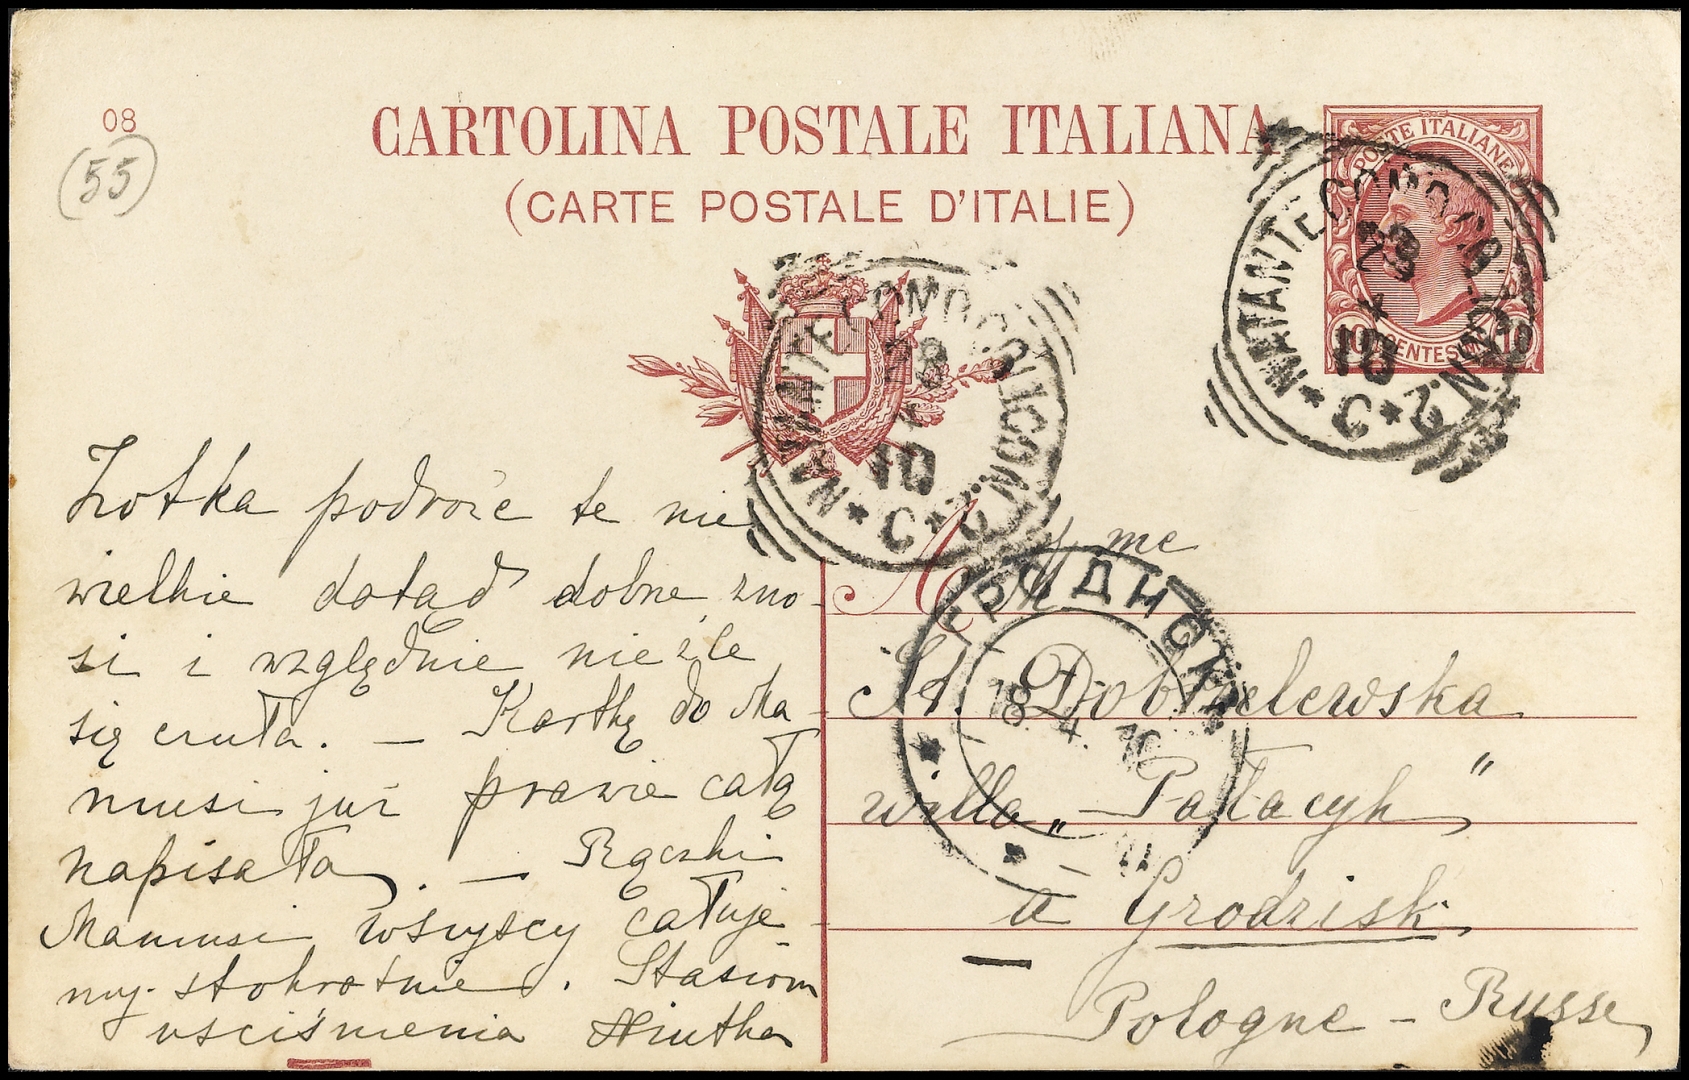 08
(55)
CARTOLINA POSTALE ITALIANA
(CARTE POSTALE D'ITALIE)
POSTE ITALIANE
10 CENTESIMI 10
NATANTE COMO COLICO N. 2
28 4 10
* C *
NATANTE COMO COLICO N. 2
28 4 10
* C *
Zotka podróże te nie
wielkie dotąd dobrze zno-
si i względnie nieźle
się czuła. — Kartkę do Ma-
musi już prawie całą
napisała. — Rączki
Mamusi wszyscy całuje-
my stokrotnie. Stasiom
uściśnienia
Mme
St. Dobrzelewska
willa „Pałacyk"
a Grodzisk
Pologne - Russe
ГРОДИСКЪ
18 4 10